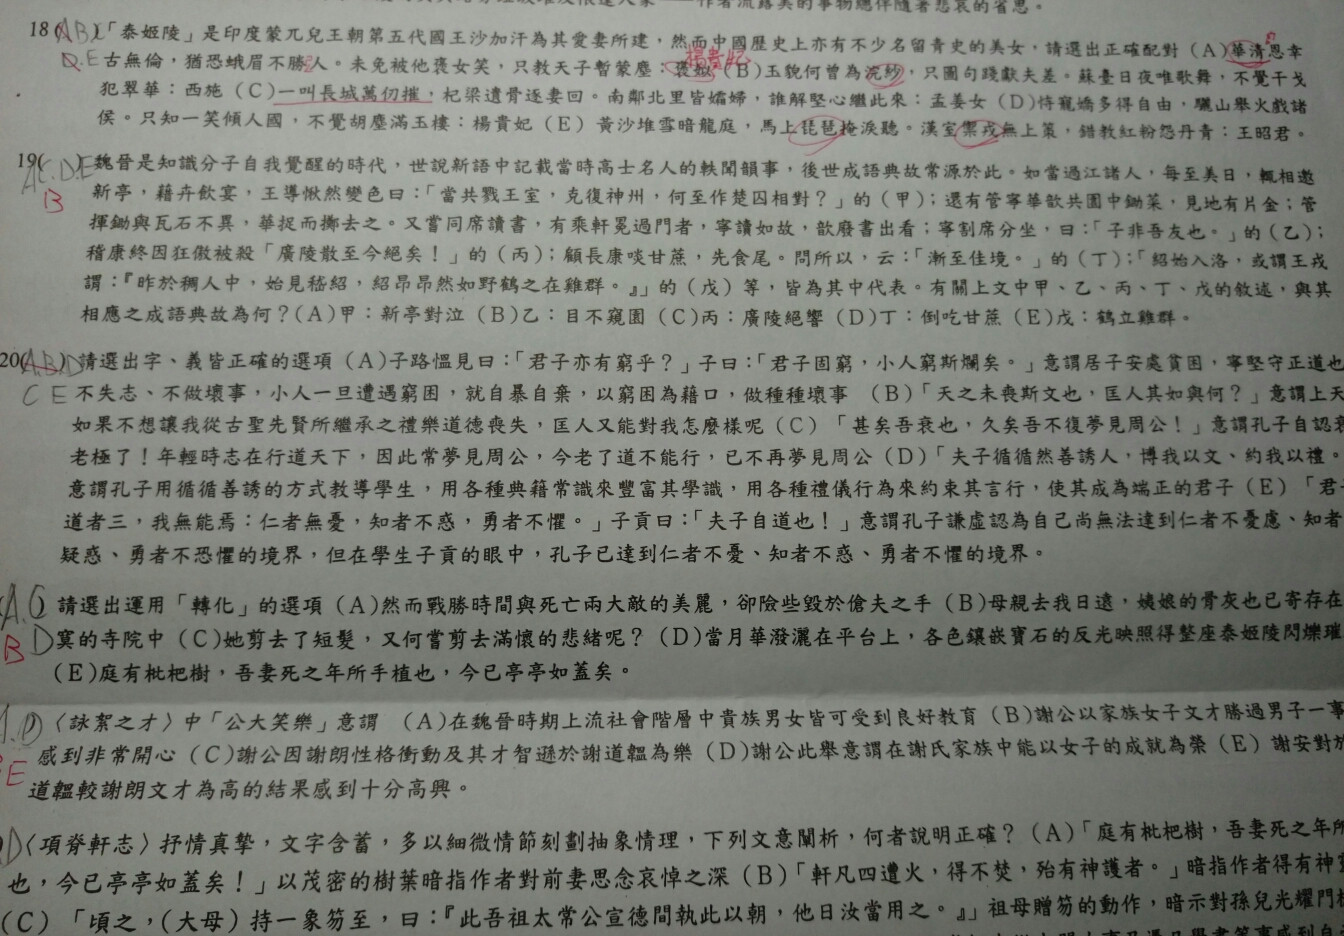 作者流露美的事物總伴隨著悲哀的省思。
18(AB)「泰姬陵」是印度蒙兀兒王朝第五代國王沙加汗為其愛妻所建，然而中國歷史上亦有不少名留青史的美女，請選出正確配對（A）華清恩幸
D.E古無倫，猶恐蛾眉不勝人。未免被他褒女笑，只教天子暫蒙塵：褒姒 楊貴妃（B）玉貌何曾為浣紗，只圖句踐獻夫差。蘇臺日夜唯歌舞，不覺干戈
犯翠華：西施（C）一叫長城萬仞摧，杞梁遺骨逐妻回。南鄰北里皆孀婦，誰解堅心繼此來：孟姜女（D）恃寵嬌多得自由，驪山舉火戲諸
侯。只知一笑傾人國，不覺胡塵滿玉樓：楊貴妃（E）黃沙堆雪暗龍庭，馬上琵琶掩淚聽。漢室禦戎無上策，錯教紅粉怨丹青：王昭君。
19(AC.D.E)魏晉是知識分子自我覺醒的時代，世說新語中記載當時高士名人的軼聞韻事，後世成語典故常源於此。如當過江諸人，每至美日，輒相邀
B新亭，藉卉飲宴，王導愀然變色曰：「當共戮王室，克復神州，何至作楚囚相對？」的（甲）；還有管寧華歆共園中鋤菜，見地有片金；管
揮鋤與瓦石不異，華捉而擲去之。又嘗同席讀書，有乘軒冕過門者，寧讀如故，歆廢書出看；寧割席分坐，曰：「子非吾友也。」的（乙）；
稽康終因狂傲被殺「廣陵散至今絕矣！」的（丙）；顧長康啖甘蔗，先食尾。問所以，云：「漸至佳境。」的（丁）；「紹始入洛，或謂王戎
謂：『昨於稠人中，始見嵇紹，紹昂昂然如野鶴之在雞群。』」的（戊）等，皆為其中代表。有關上文中甲、乙、丙、丁、戊的敘述，與其
相應之成語典故為何？（A）甲：新亭對泣（B）乙：目不窺園（C）丙：廣陵絕響（D）丁：倒吃甘蔗（E）戊：鶴立雞群。
20(A.B)D請選出字、義皆正確的選項（A）子路慍見曰：「君子亦有窮乎？」子曰：「君子固窮，小人窮斯爛矣。」意謂居子安處貧困，寧堅守正道也
CE不失志、不做壞事，小人一旦遭遇窮困，就自暴自棄，以窮困為藉口，做種種壞事（B）「天之未喪斯文也，匡人其如與何？」意謂上天
如果不想讓我從古聖先賢所繼承之禮樂道德喪失，匡人又能對我怎麼樣呢（C）「甚矣吾衰也，久矣吾不復夢見周公！」意謂孔子自認衰
老極了！年輕時志在行道天下，因此常夢見周公，今老了道不能行，已不再夢見周公（D）「夫子循循然善誘人，博我以文、約我以禮。
意謂孔子用循循善誘的方式教導學生，用各種典籍常識來豐富其學識，用各種禮儀行為來約束其言行，使其成為端正的君子（E）「君子
道者三，我無能焉：仁者無憂，知者不惑，勇者不懼。」子貢曰：「夫子自道也！」意謂孔子謙虛認為自己尚無法達到仁者不憂慮、知者
疑惑、勇者不恐懼的境界，但在學生子貢的眼中，孔子已達到仁者不憂、知者不惑、勇者不懼的境界。
A.C)請選出運用「轉化」的選項（A）然而戰勝時間與死亡兩大敵的美麗，卻險些毀於傖夫之手（B）母親去我日遠，姨娘的骨灰也已寄存在
BD寞的寺院中（C）她剪去了短髮，又何嘗剪去滿懷的悲緒呢？（D）當月華潑灑在平台上，各色鑲嵌寶石的反光映照得整座泰姬陵閃爍璀
（E）庭有枇杷樹，吾妻死之年所手植也，今已亭亭如蓋矣。
A.D)〈詠絮之才〉中「公大笑樂」意謂（A）在魏晉時期上流社會階層中貴族男女皆可受到良好教育（B）謝公以家族女子文才勝過男子一事
感到非常開心（C）謝公因謝朗性格衝動及其才智遜於謝道韞為樂（D）謝公此舉意謂在謝氏家族中能以女子的成就為榮（E）謝安對於
E道韞較謝朗文才為高的結果感到十分高興。
D〈項脊軒志〉抒情真摯，文字含蓄，多以細微情節刻劃抽象情理，下列文意闡析，何者說明正確？（A）「庭有枇杷樹，吾妻死之年所
也，今已亭亭如蓋矣！」以茂密的樹葉暗指作者對前妻思念哀悼之深（B）「軒凡四遭火，得不焚，殆有神護者。」暗指作者得有神靈
（C）「頃之，（大母）持一象笏至，曰：『此吾祖太常公宣德間執此以朝，他日汝當用之。』」祖母贈笏的動作，暗示對孫兒光耀門楣